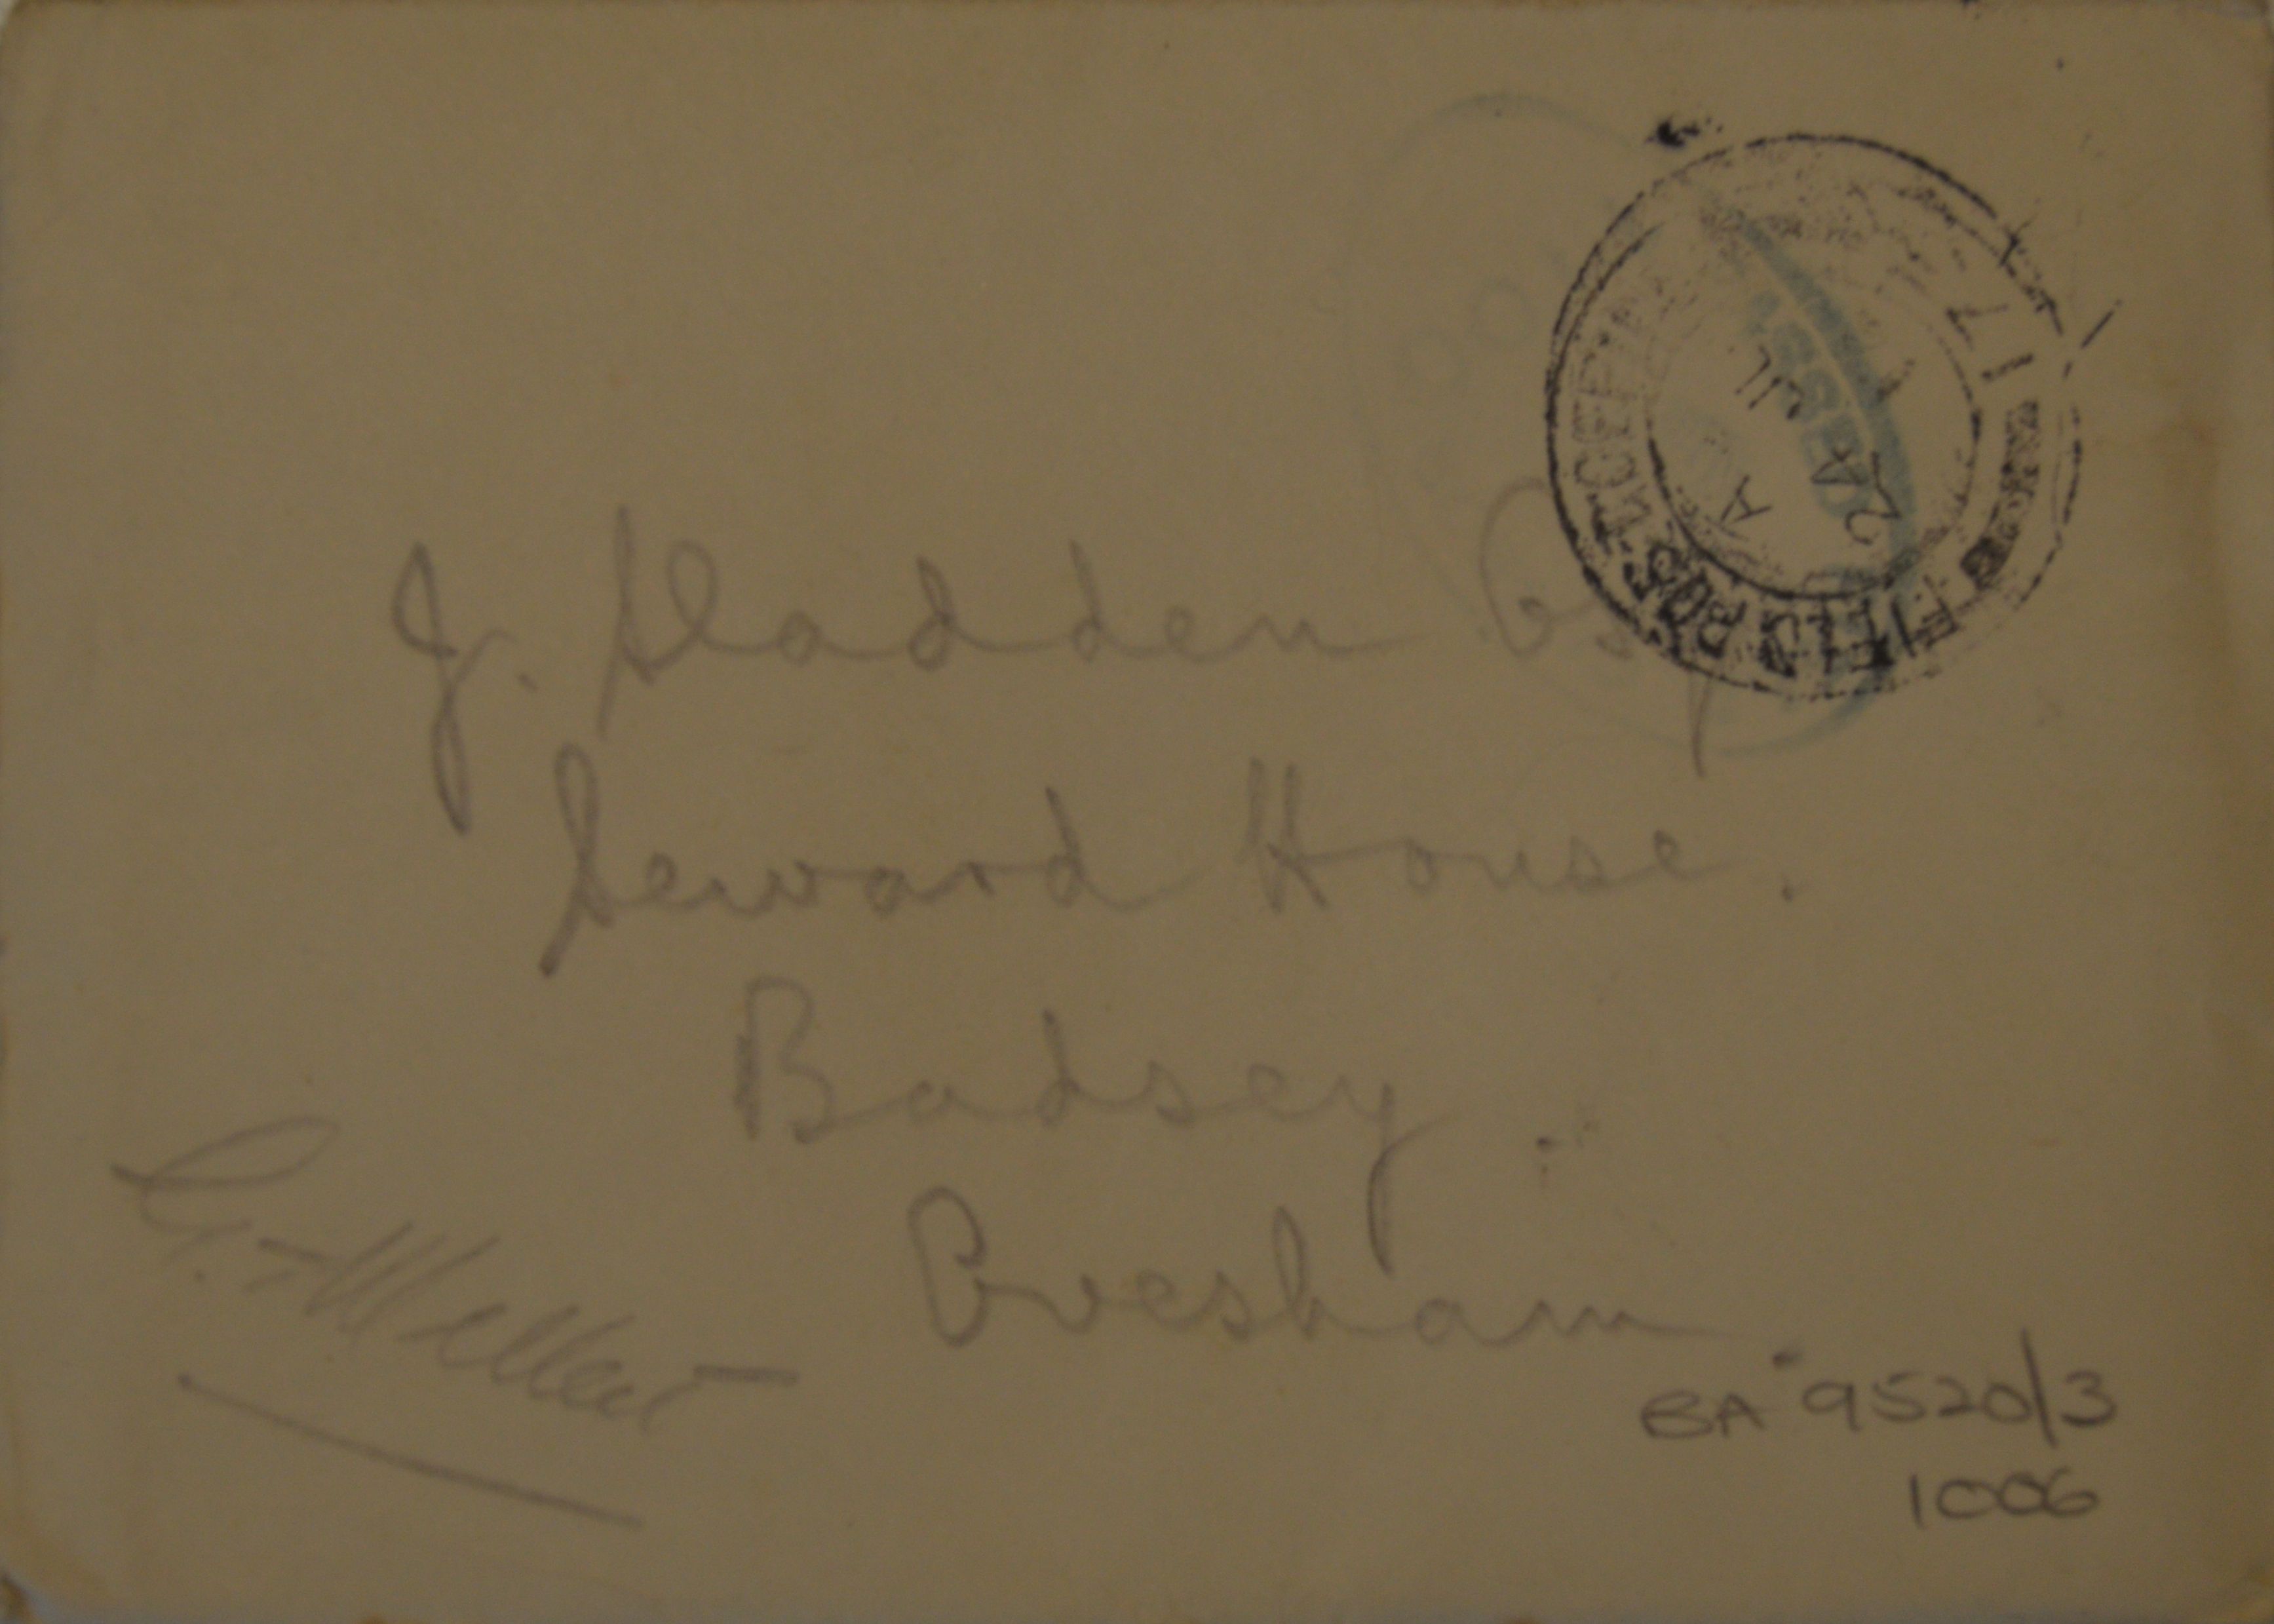 FIELD POST OFFICE
17
A
J. Sladden Esq
Seward House.
Badsey.
Evesham.
BA 9520/3
1006